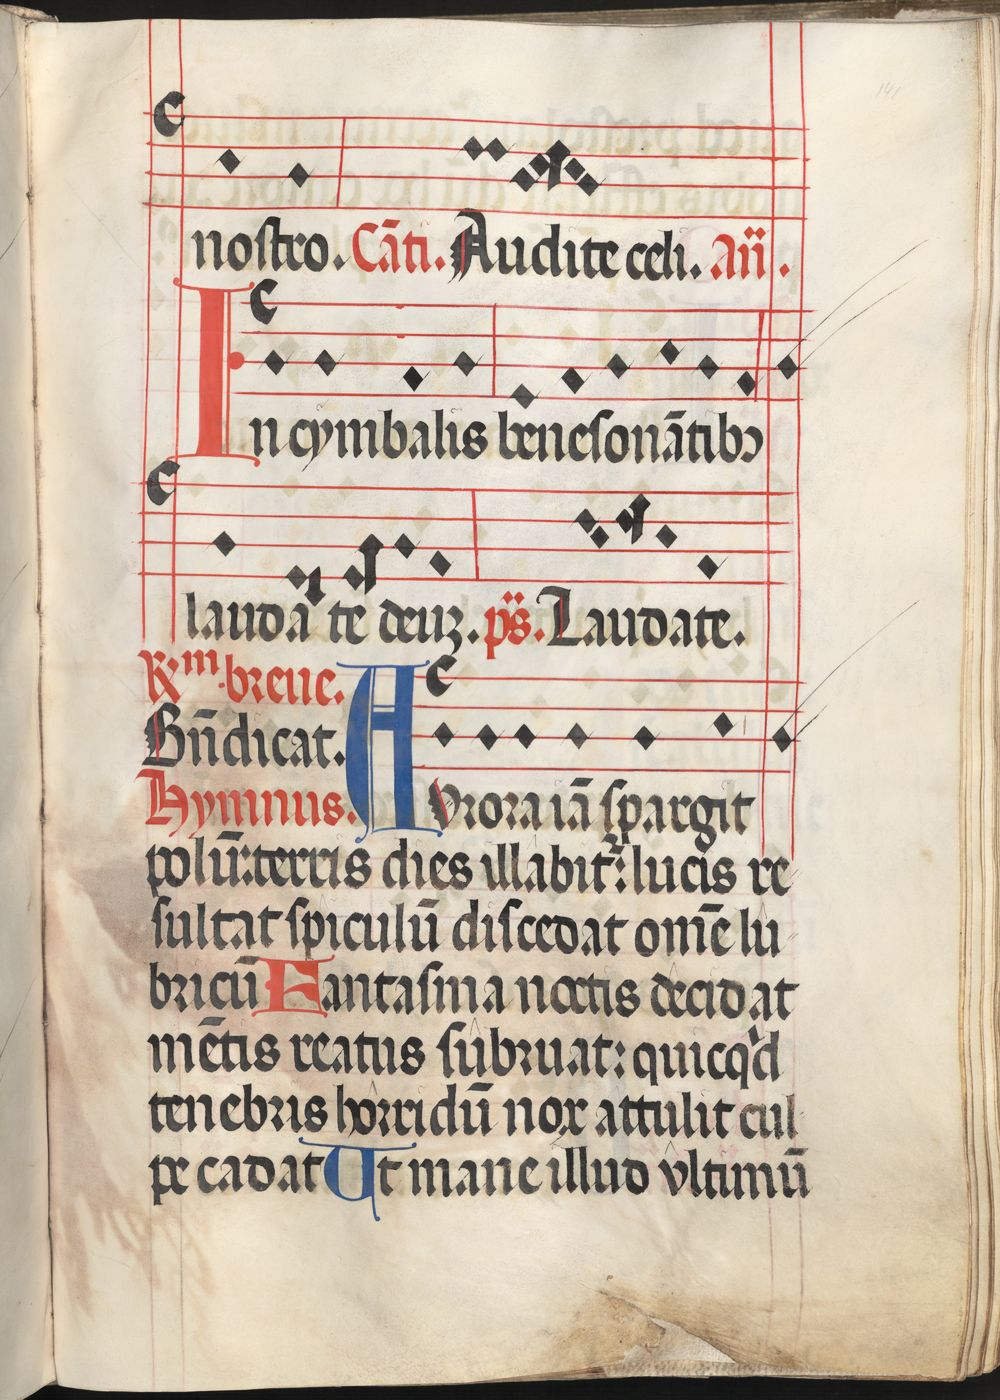 141
nostro. Cãti. Audite celi. Añ.
In cymbalis benesonãtibꝯ
laudate deuʒ. ps. Laudate.
R̃m. breue.
Bñdicat.
Hymnus. Avrora iã spargit
polũ: terris dies illabit᷑: lucis re
sultat spiculũ discedat om̃e lu
bricũ Fantasma noctis decidat
mẽtis reatus subruat: quicq'd
tenebris horridũ nox attulit cul
pe cadat Ut mane illud vltimũ